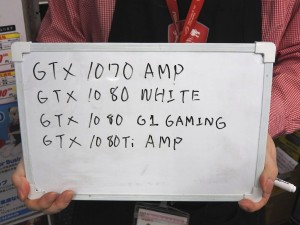 GTX 1070 AMP
GTX 1080 WHITE
GTX 1080 G1 GAMING
GTX 1080Ti AMP